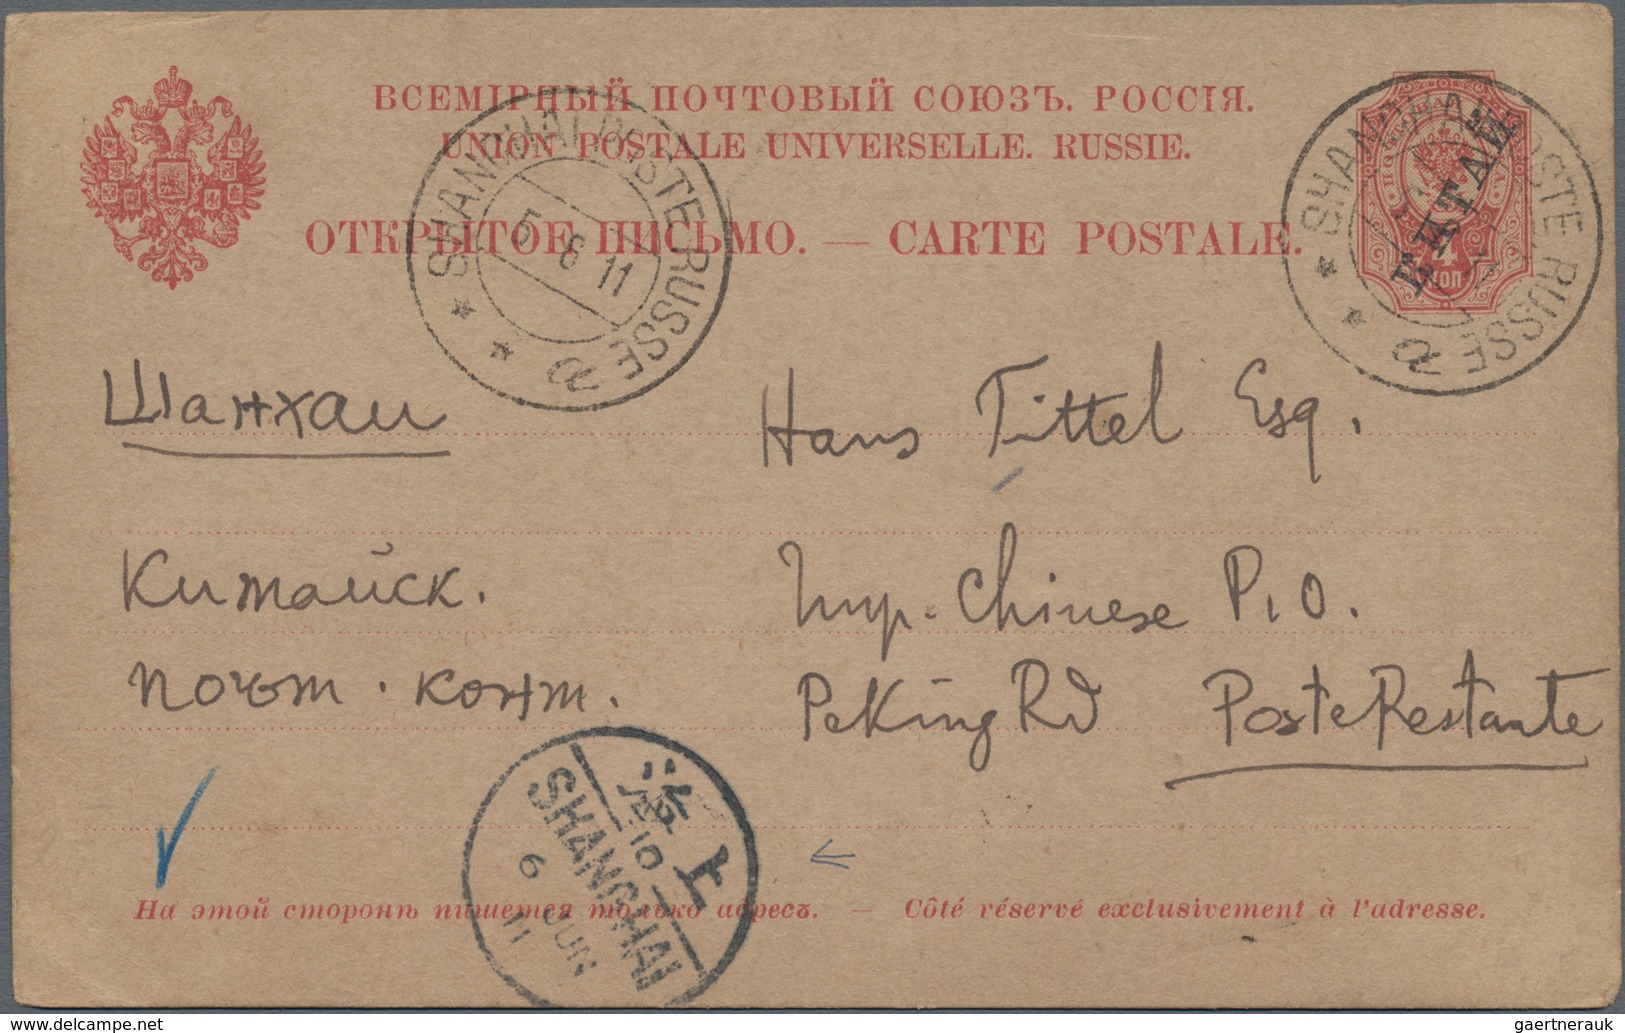 ВСЕМІРНЫЙ ПОЧТОВЫЙ СОЮЗЪ. РОССІЯ.
UNION POSTALE UNIVERSELLE. RUSSIE.
ОТКРЫТОЕ ПИСЬМО. — CARTE POSTALE.
SHANGHAI POSTE RUSSE
5 6 11
SHANGHAI POSTE RUSSE
КИТАЙ
4
КОП
Шанхаи
Hans Tittel Esq.
Китайск.
Imp. Chinese P.O.
почт. конт.
Peking Rd Poste Restante
上海
10
SHANGHAI
6 JUN
11
На этой сторонѣ пишется только адресъ. — Côté réservé exclusivement à l'adresse.
gaertnerauk